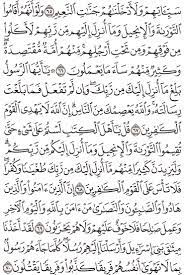 سَيِّـَٔاتِهِمْ وَلَأَدْخَلْنَٰهُمْ جَنَّٰتِ ٱلنَّعِيمِ ٦٥ وَلَوْ أَنَّهُمْ أَقَامُوا۟
ٱلتَّوْرَىٰةَ وَٱلْإِنجِيلَ وَمَآ أُنزِلَ إِلَيْهِم مِّن رَّبِّهِمْ لَأَكَلُوا۟
مِن فَوْقِهِمْ وَمِن تَحْتِ أَرْجُلِهِم مِّنْهُمْ أُمَّةٌ مُّقْتَصِدَةٌ
وَكَثِيرٌ مِّنْهُمْ سَآءَ مَا يَعْمَلُونَ ٦٦ يَٰٓأَيُّهَا ٱلرَّسُولُ
بَلِّغْ مَآ أُنزِلَ إِلَيْكَ مِن رَّبِّكَ وَإِن لَّمْ تَفْعَلْ فَمَا بَلَّغْتَ
رِسَالَتَهُۥ وَٱللَّهُ يَعْصِمُكَ مِنَ ٱلنَّاسِ إِنَّ ٱللَّهَ لَا يَهْدِى ٱلْقَوْمَ
ٱلْكَٰفِرِينَ ٦٧ قُلْ يَٰٓأَهْلَ ٱلْكِتَٰبِ لَسْتُمْ عَلَىٰ شَىْءٍ حَتَّىٰ
تُقِيمُوا۟ ٱلتَّوْرَىٰةَ وَٱلْإِنجِيلَ وَمَآ أُنزِلَ إِلَيْكُم مِّن رَّبِّكُمْ
وَلَيَزِيدَنَّ كَثِيرًا مِّنْهُم مَّآ أُنزِلَ إِلَيْكَ مِن رَّبِّكَ طُغْيَٰنًا وَكُفْرًا
فَلَا تَأْسَ عَلَى ٱلْقَوْمِ ٱلْكَٰفِرِينَ ٦٨ إِنَّ ٱلَّذِينَ ءَامَنُوا۟ وَٱلَّذِينَ
هَادُوا۟ وَٱلصَّٰبِـُٔونَ وَٱلنَّصَٰرَىٰ مَنْ ءَامَنَ بِٱللَّهِ وَٱلْيَوْمِ ٱلْـَٔاخِرِ
وَعَمِلَ صَٰلِحًا فَلَا خَوْفٌ عَلَيْهِمْ وَلَا هُمْ يَحْزَنُونَ ٦٩ لَقَدْ أَخَذْنَا
مِيثَٰقَ بَنِىٓ إِسْرَٰٓءِيلَ وَأَرْسَلْنَآ إِلَيْهِمْ رُسُلًا كُلَّمَا جَآءَهُمْ رَسُولٌۢ
بِمَا لَا تَهْوَىٰٓ أَنفُسُهُمْ فَرِيقًا كَذَّبُوا۟ وَفَرِيقًا يَقْتُلُونَ ٧٠